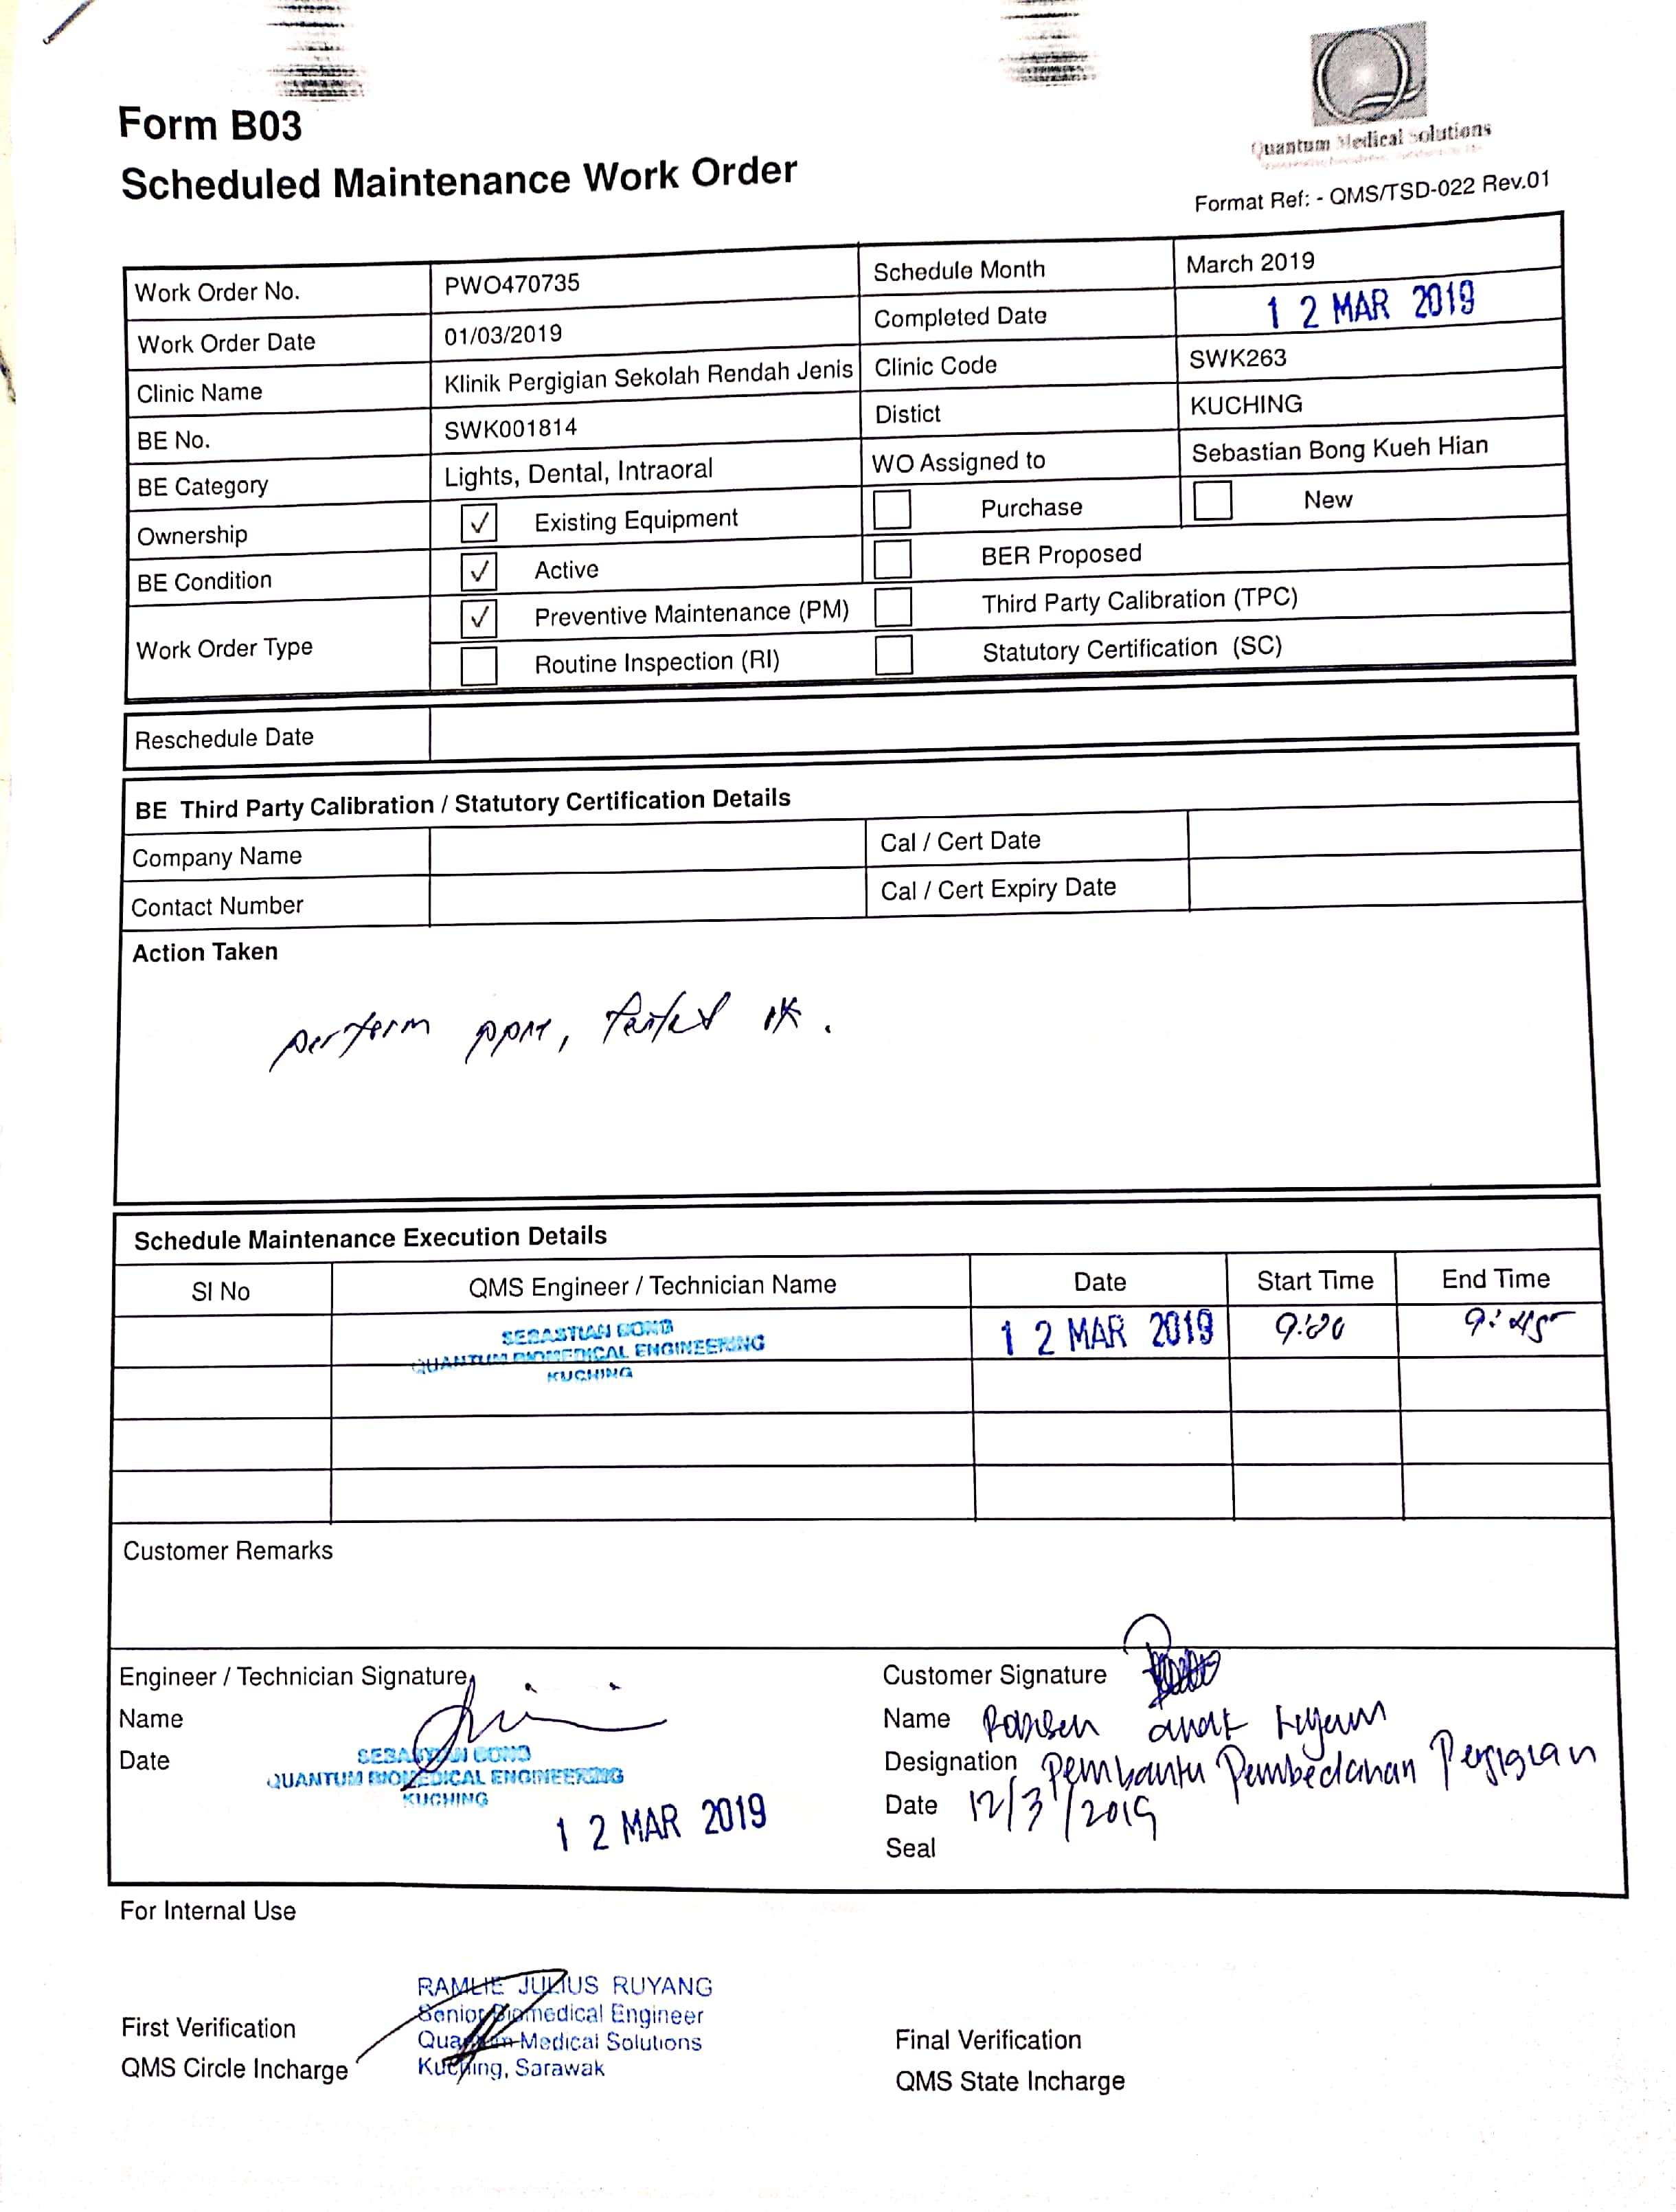 Form B03
Scheduled Maintenance Work Order
Quantum Medical Solutions
Format Ref: - QMS/TSD-022 Rev.01
Work Order No. PWO470735 Schedule Month March 2019
Work Order Date 01/03/2019 Completed Date 12 MAR 2019
Clinic Name Klinik Pergigian Sekolah Rendah Jenis Clinic Code SWK263
BE No. SWK001814 Distict KUCHING
BE Category Lights, Dental, Intraoral WO Assigned to Sebastian Bong Kueh Hian
Ownership ✓ Existing Equipment Purchase New
BE Condition ✓ Active BER Proposed
Work Order Type ✓ Preventive Maintenance (PM) Third Party Calibration (TPC)
Routine Inspection (RI) Statutory Certification (SC)
Reschedule Date
BE Third Party Calibration / Statutory Certification Details
Company Name Cal / Cert Date
Contact Number Cal / Cert Expiry Date
Action Taken
perform ppm, tested ok.
Schedule Maintenance Execution Details
Sl No QMS Engineer / Technician Name Date Start Time End Time
SEBASTIAN BONG 12 MAR 2019 9:45
QUANTUM BIOMEDICAL ENGINEERING
KUCHING
Customer Remarks
Engineer / Technician Signature
Name
Date
SEBASTIAN BONG
QUANTUM BIOMEDICAL ENGINEERING
KUCHING
12 MAR 2019
Customer Signature
Name anak
Designation Pembantu Pembedahan Pergigian
Date 12/3/2019
Seal
For Internal Use
RAMLIE JULIUS RUYANG
Senior Biomedical Engineer
Quantum Medical Solutions
Kuching, Sarawak
First Verification
QMS Circle Incharge
Final Verification
QMS State Incharge